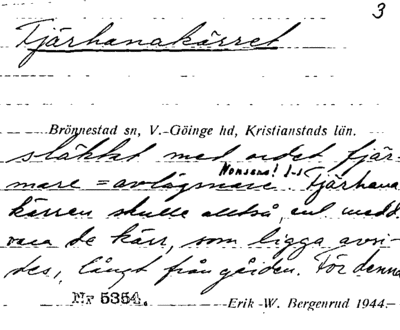 3
Tjärhanakärret
Brönnestad sn, V. Göinge hd, Kristianstads län.
släktat med ordet fjär-
mare = avlägsnare Nonsens! Tjärhana
kärren skulle alltså, enl. medd.
vara de kärr, som ligga avsi-
des, långt från gården. För denna
Nr 5354.
Erik W. Bergenrud 1944.